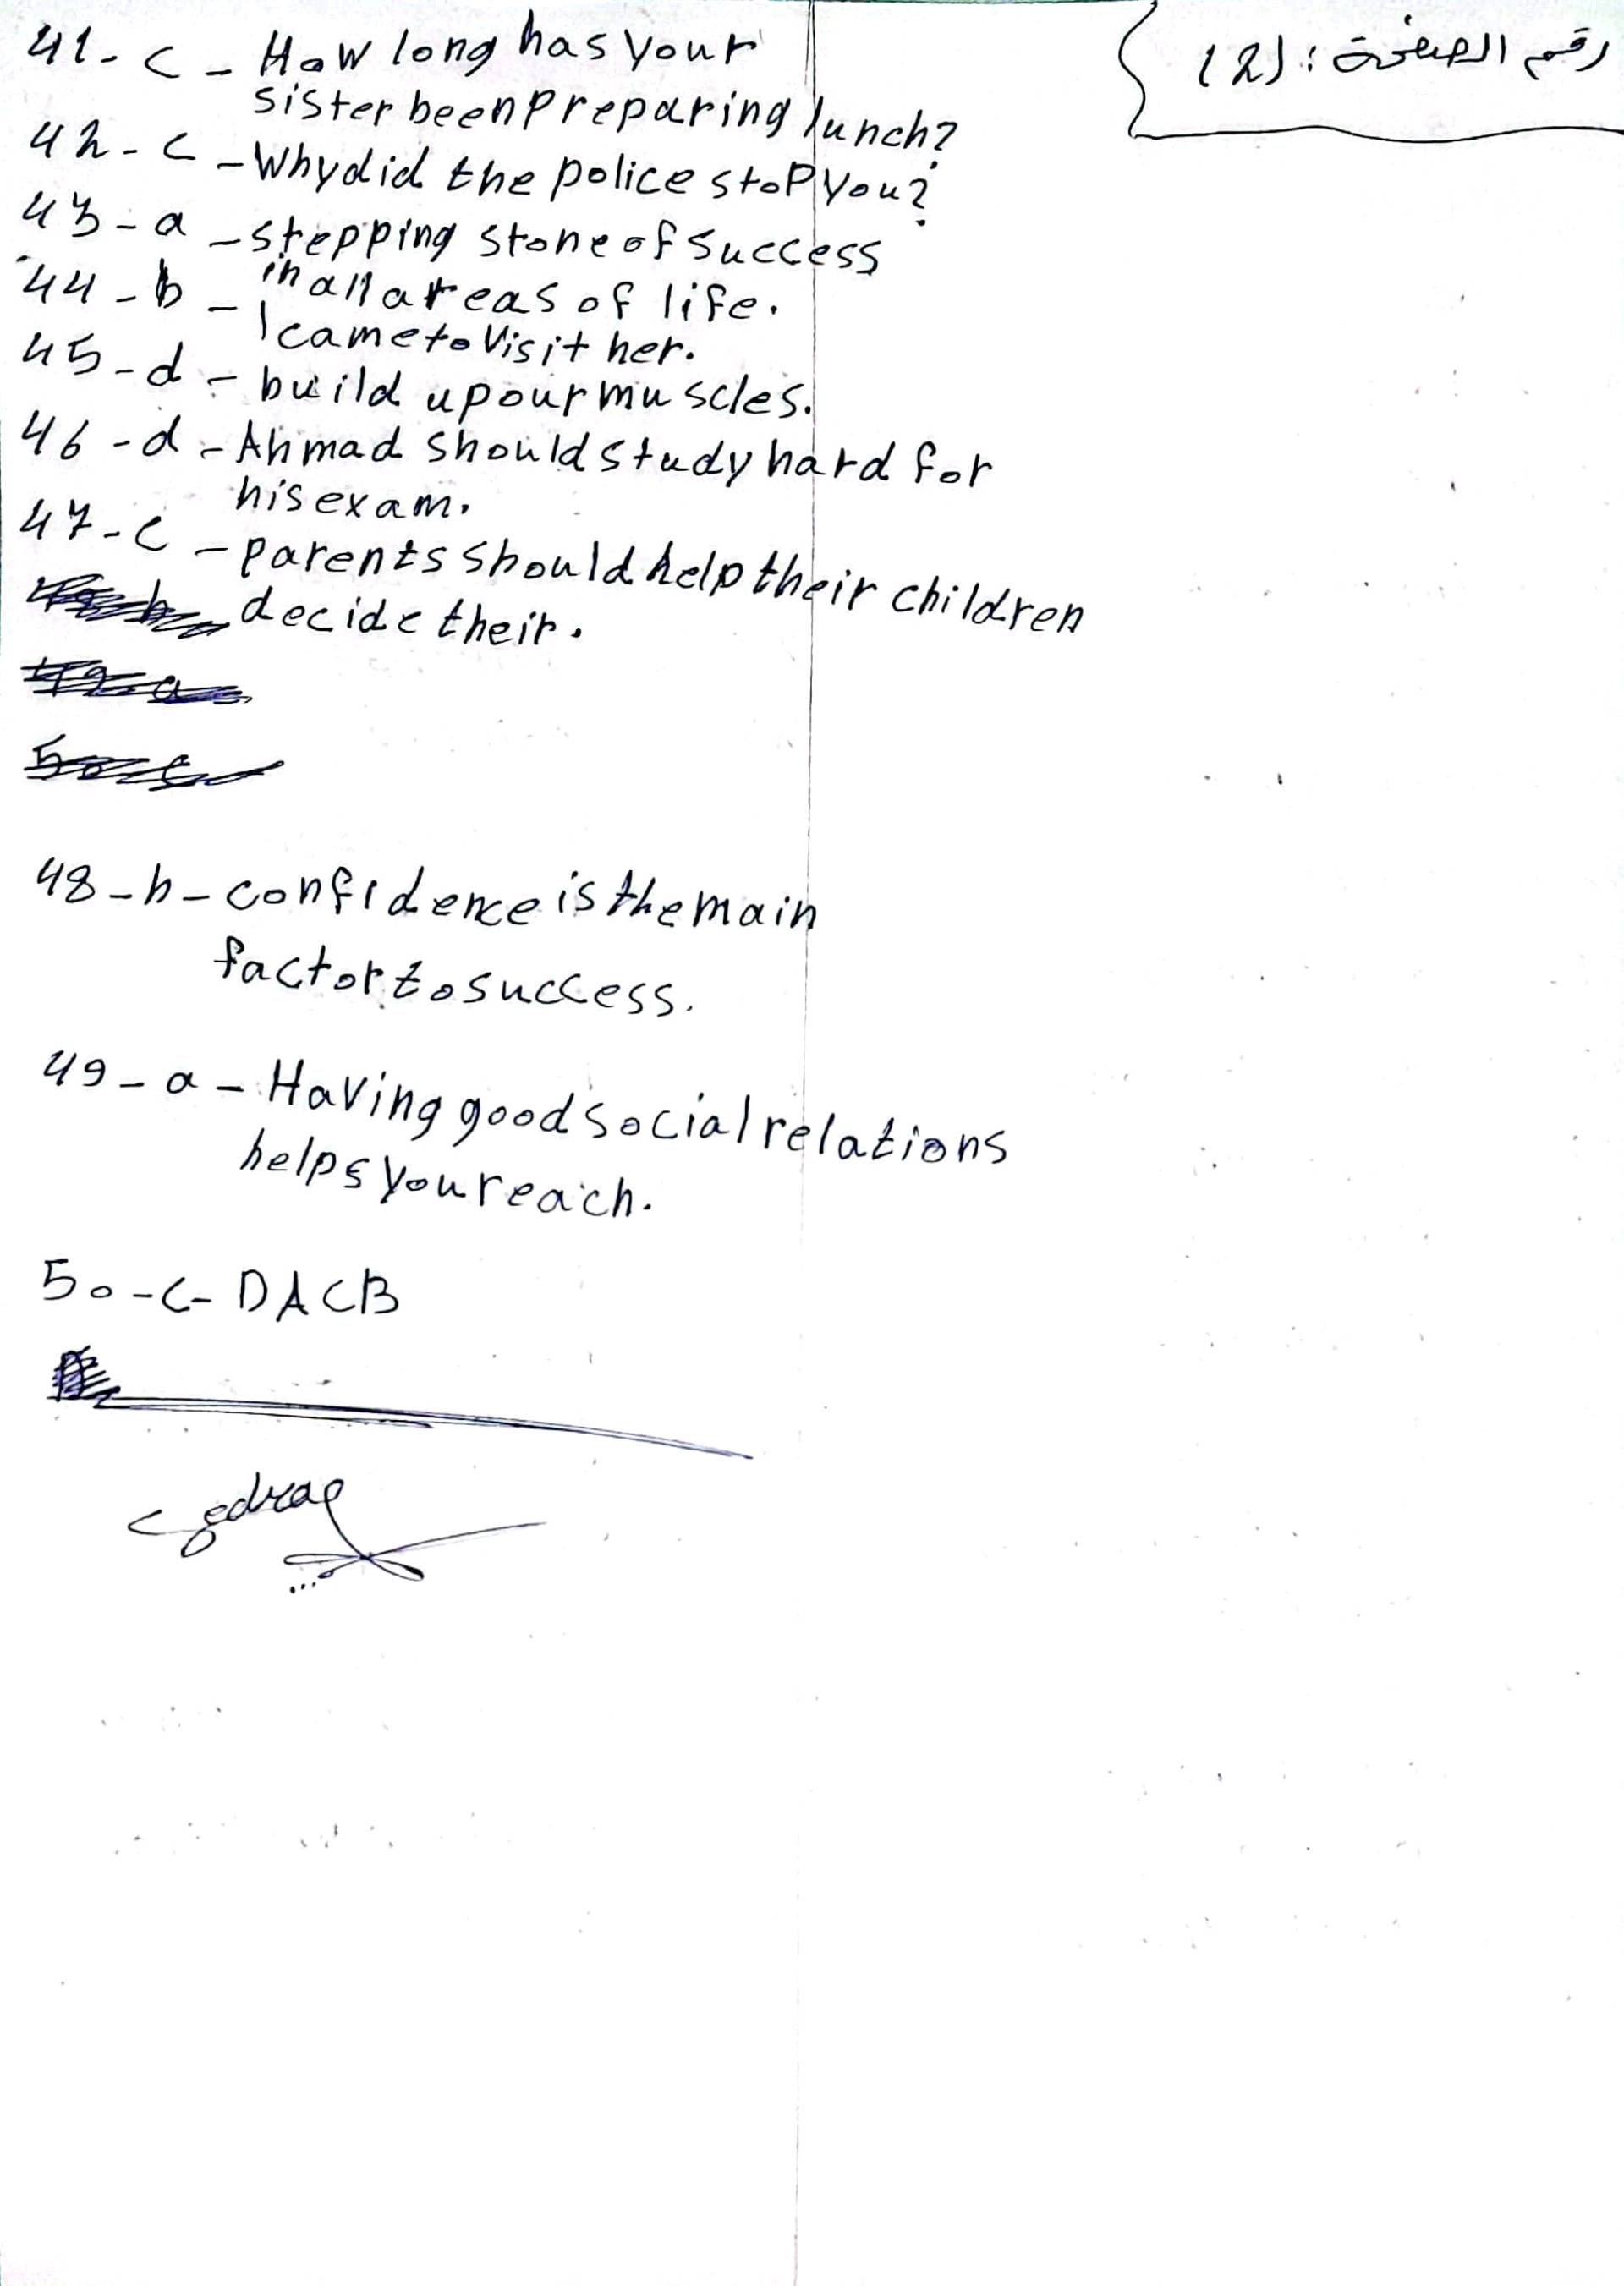 رقم الصفحة : (2)
41- c - How long has your
sister been preparing lunch?
42- c - Why did the police stop you?
43- a - stepping stone of success
in all areas of life.
44- b - I came to visit her.
45- d - build up our muscles.
46- d - Ahmad should study hard for
his exam.
47- c - parents should help their children
decide their.
48- b - confidence is the main
factor to success.
49- a - Having good social relations
helps you reach.
50- c - DACB